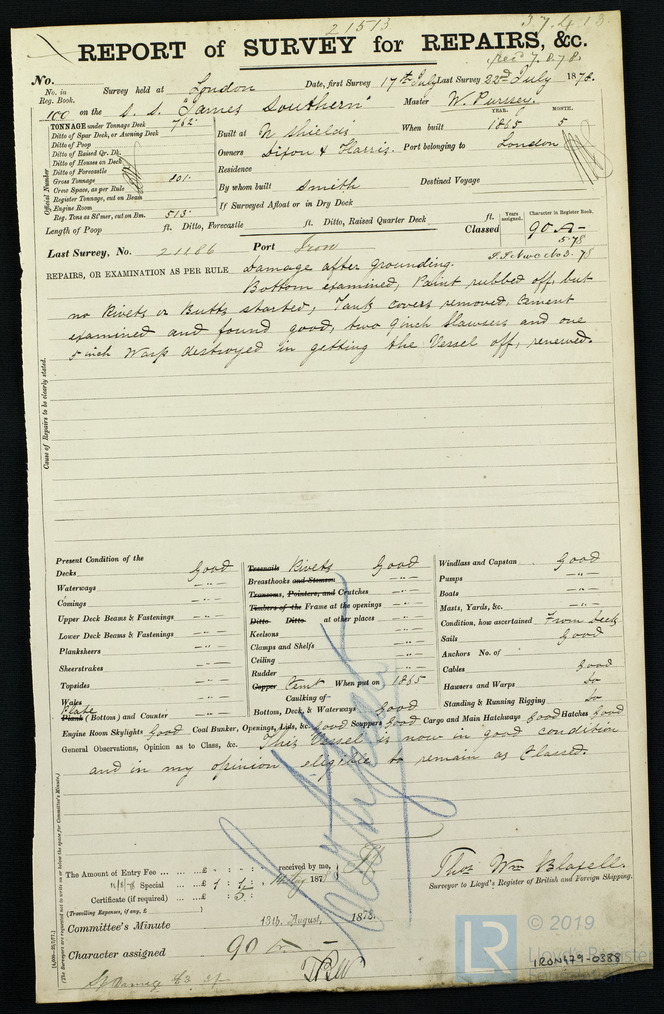 21513
37413
REPORT of SURVEY for REPAIRS, &c.
rec 7.8.78
No. Survey held at London Date, first Survey 17th July Last Survey 22nd July 1878.
No. in Reg. Book.
100 on the S. S. "James Southern" Master W. Pursey.
TONNAGE under Tonnage Deck 762
Ditto of Spar Deck, or Awning Deck
Ditto of Poop
Ditto of Raised Qr. Dk.
Ditto of Houses on Deck
Ditto of Forecastle
Gross Tonnage 801
Crew Space, as per Rule
Register Tonnage, cut on Beam
Engine Room
Reg. Tons as St'mer, cut on Bm. 513
Official Number
Built at N Shields When built YEAR. 1865 MONTH. 5
Owners Dixon & Harris. Port belonging to London
Residence
By whom built Smith Destined Voyage
If Surveyed Afloat or in Dry Dock
Length of Poop ft. Ditto, Forecastle ft. Ditto, Raised Quarter Deck ft.
Classed
Years assigned.
Character in Register Book.
90 A
5.78
Last Survey, No. 21186 Port Iron
REPAIRS, OR EXAMINATION AS PER RULE Damage after grounding.
Bottom examined, Paint rubbed off, but
no Rivets or Butts started, Tank covers removed, cement
examined and found good, two 9 inch Hawsers and one
5 inch Warp destroyed in getting the Vessel off, renewed.
Cause of Repairs to be clearly stated.
Present Condition of the
Decks Good
Waterways -"-
Comings -"-
Upper Deck Beams & Fastenings -"-
Lower Deck Beams & Fastenings -"-
Planksheers -"-
Sheerstrakes -"-
Topsides -"-
Wales -"-
Plate
Plank (Bottom) and Counter -"-
Treenails Rivets Good
Breasthooks and Stemson -"-
Transoms, Pointers, and Crutches -"-
Timbers of the Frame at the openings -"-
Ditto Ditto at other places -"-
Keelsons -"-
Clamps and Shelfs -"-
Ceiling -"-
Rudder -"-
Copper Cemt When put on 1865
Caulking of
Bottom, Deck, & Waterways Good
Windlass and Capstan Good
Pumps -"-
Boats -"-
Masts, Yards, &c. -"-
Condition, how ascertained From deck
Sails Good
Anchors No. of
Cables Good
Hawsers and Warps Do
Standing & Running Rigging Do
Engine Room Skylights Good Coal Bunker, Openings, Lids, &c. Good Scuppers Good Cargo and Main Hatchways Good Hatches Good
General Observations, Opinion as to Class, &c. This Vessel is now in good condition
and in my opinion eligible to remain as Classed.
(The Surveyors are requested not to write on or below the space for Committee's Minute.)
The Amount of Entry Fee ... £ - : - : received by me,
Special ... £ 1 : 1 :
187
Certificate (if required) ... £ : 5 :
(Travelling Expenses, if any, £ )
Thos Wm Blaxell.
Surveyor to Lloyd's Register of British and Foreign Shipping.
Committee's Minute 13th August, 1878.
Character assigned 90 A
LR
© 2019
Lloyd's Register
IRON479-0388